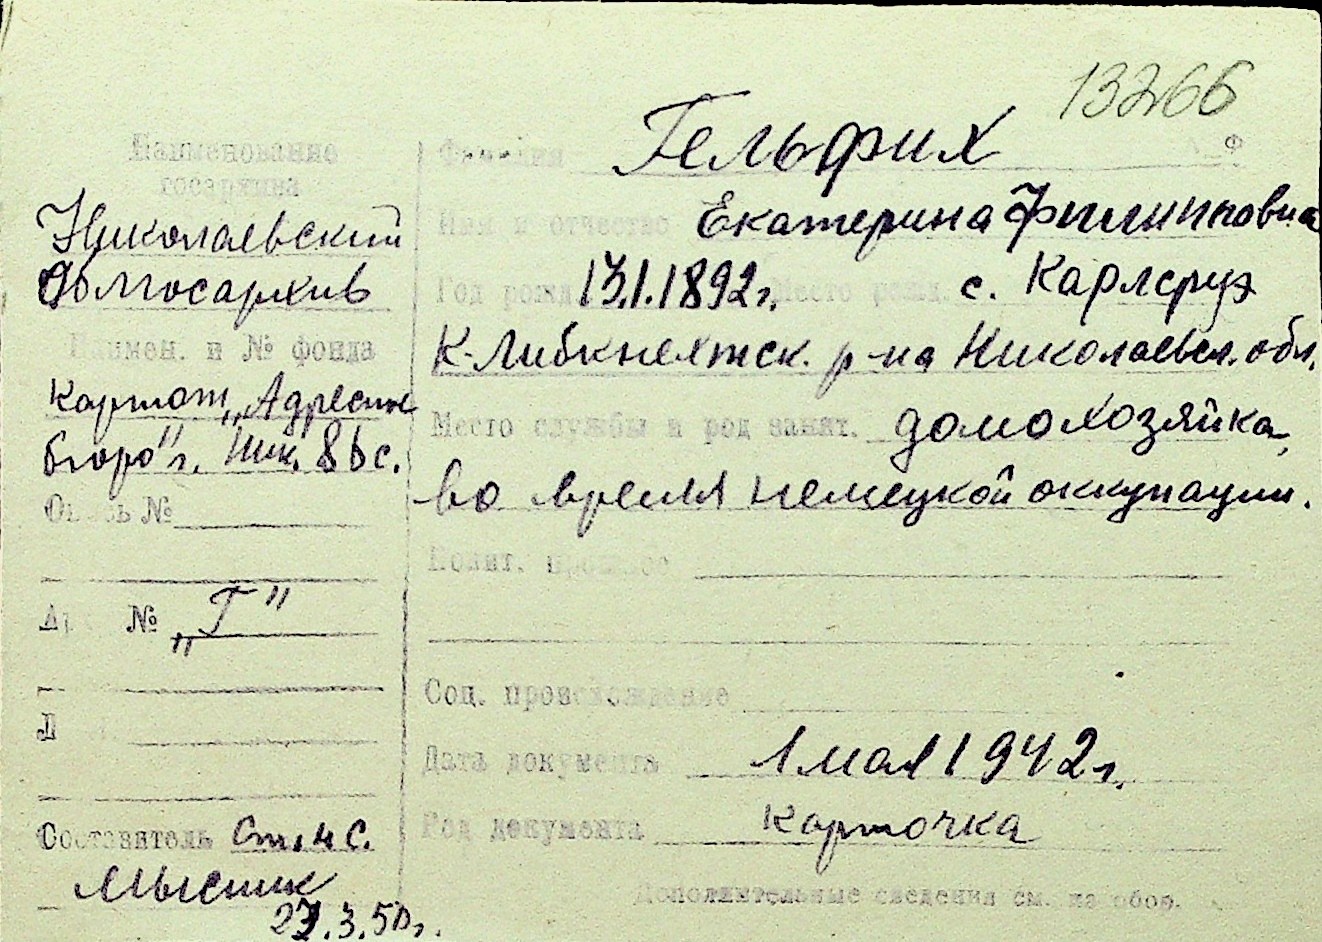 13266
Наименование
госархива
Николаевский
Облгосархив
Наимен. и № фонда
Картот. „Адресное
бюро" г. Ник.
Опись №
№ „Г"
Составитель Ст. н. с.
Мысник
27.3.50 г.
Фамилия Гельфих
Ф
Имя и отчество Екатерина Филипповна
Год рожд. 13.1.1892 г. Место рожд. с. Карлсруэ
К-Либкнехтск. р-на Николаевск. обл.
Место службы и род занят. домохозяйка,
во время немецкой оккупации.
Полит. прошлое
Соц. происхождение
Дата документа 1 мая 1942 г.
Род документа карточка
Дополнительные сведения см. на обор.